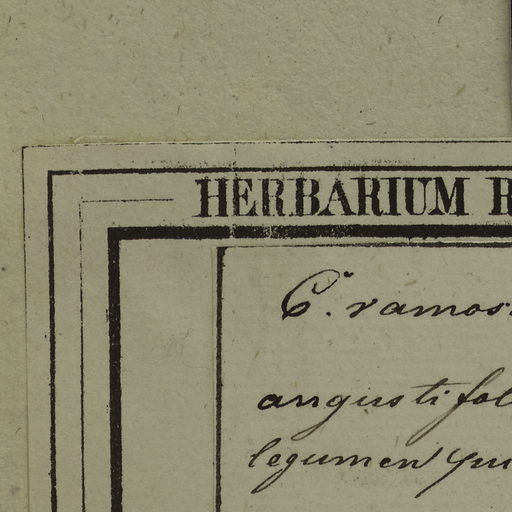 HERBARIUM R
C. ramos
angustifol
legumen